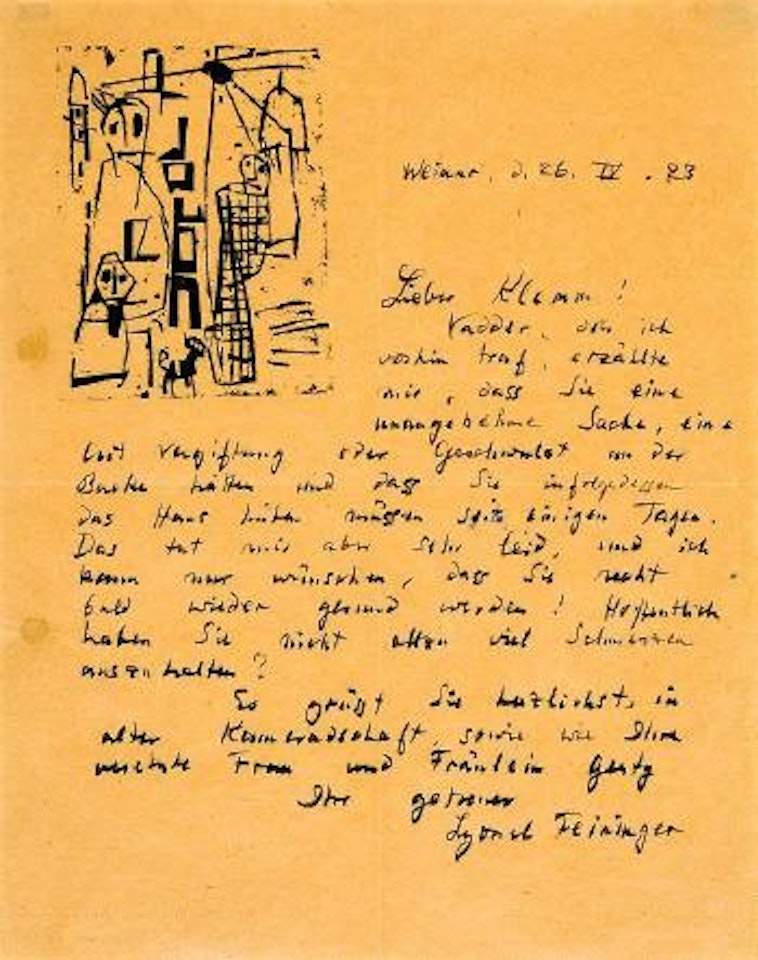 Weimar, d. 26. IV. 23
Lieber Klemm!
Vadder, den ich
vorhin traf, erzählte
mir, dass Sie eine
unangenehme Sache, eine
Vergiftung oder Geschwulst an der
Backe hätten und dass Sie infolgedessen
das Haus hüten müssen seit einigen Tagen.
Das tut mir aber sehr leid, und ich
kann nur wünschen, dass Sie recht
bald wieder gesund werden! Hoffentlich
haben Sie nicht allzu viel Schmerzen
auszuhalten?
Es grüsst Sie herzlichst, in
alter Kameradschaft, sowie wie Ihre
verehrte Frau und Fräulein
Ihr getreuer
Lyonel Feininger